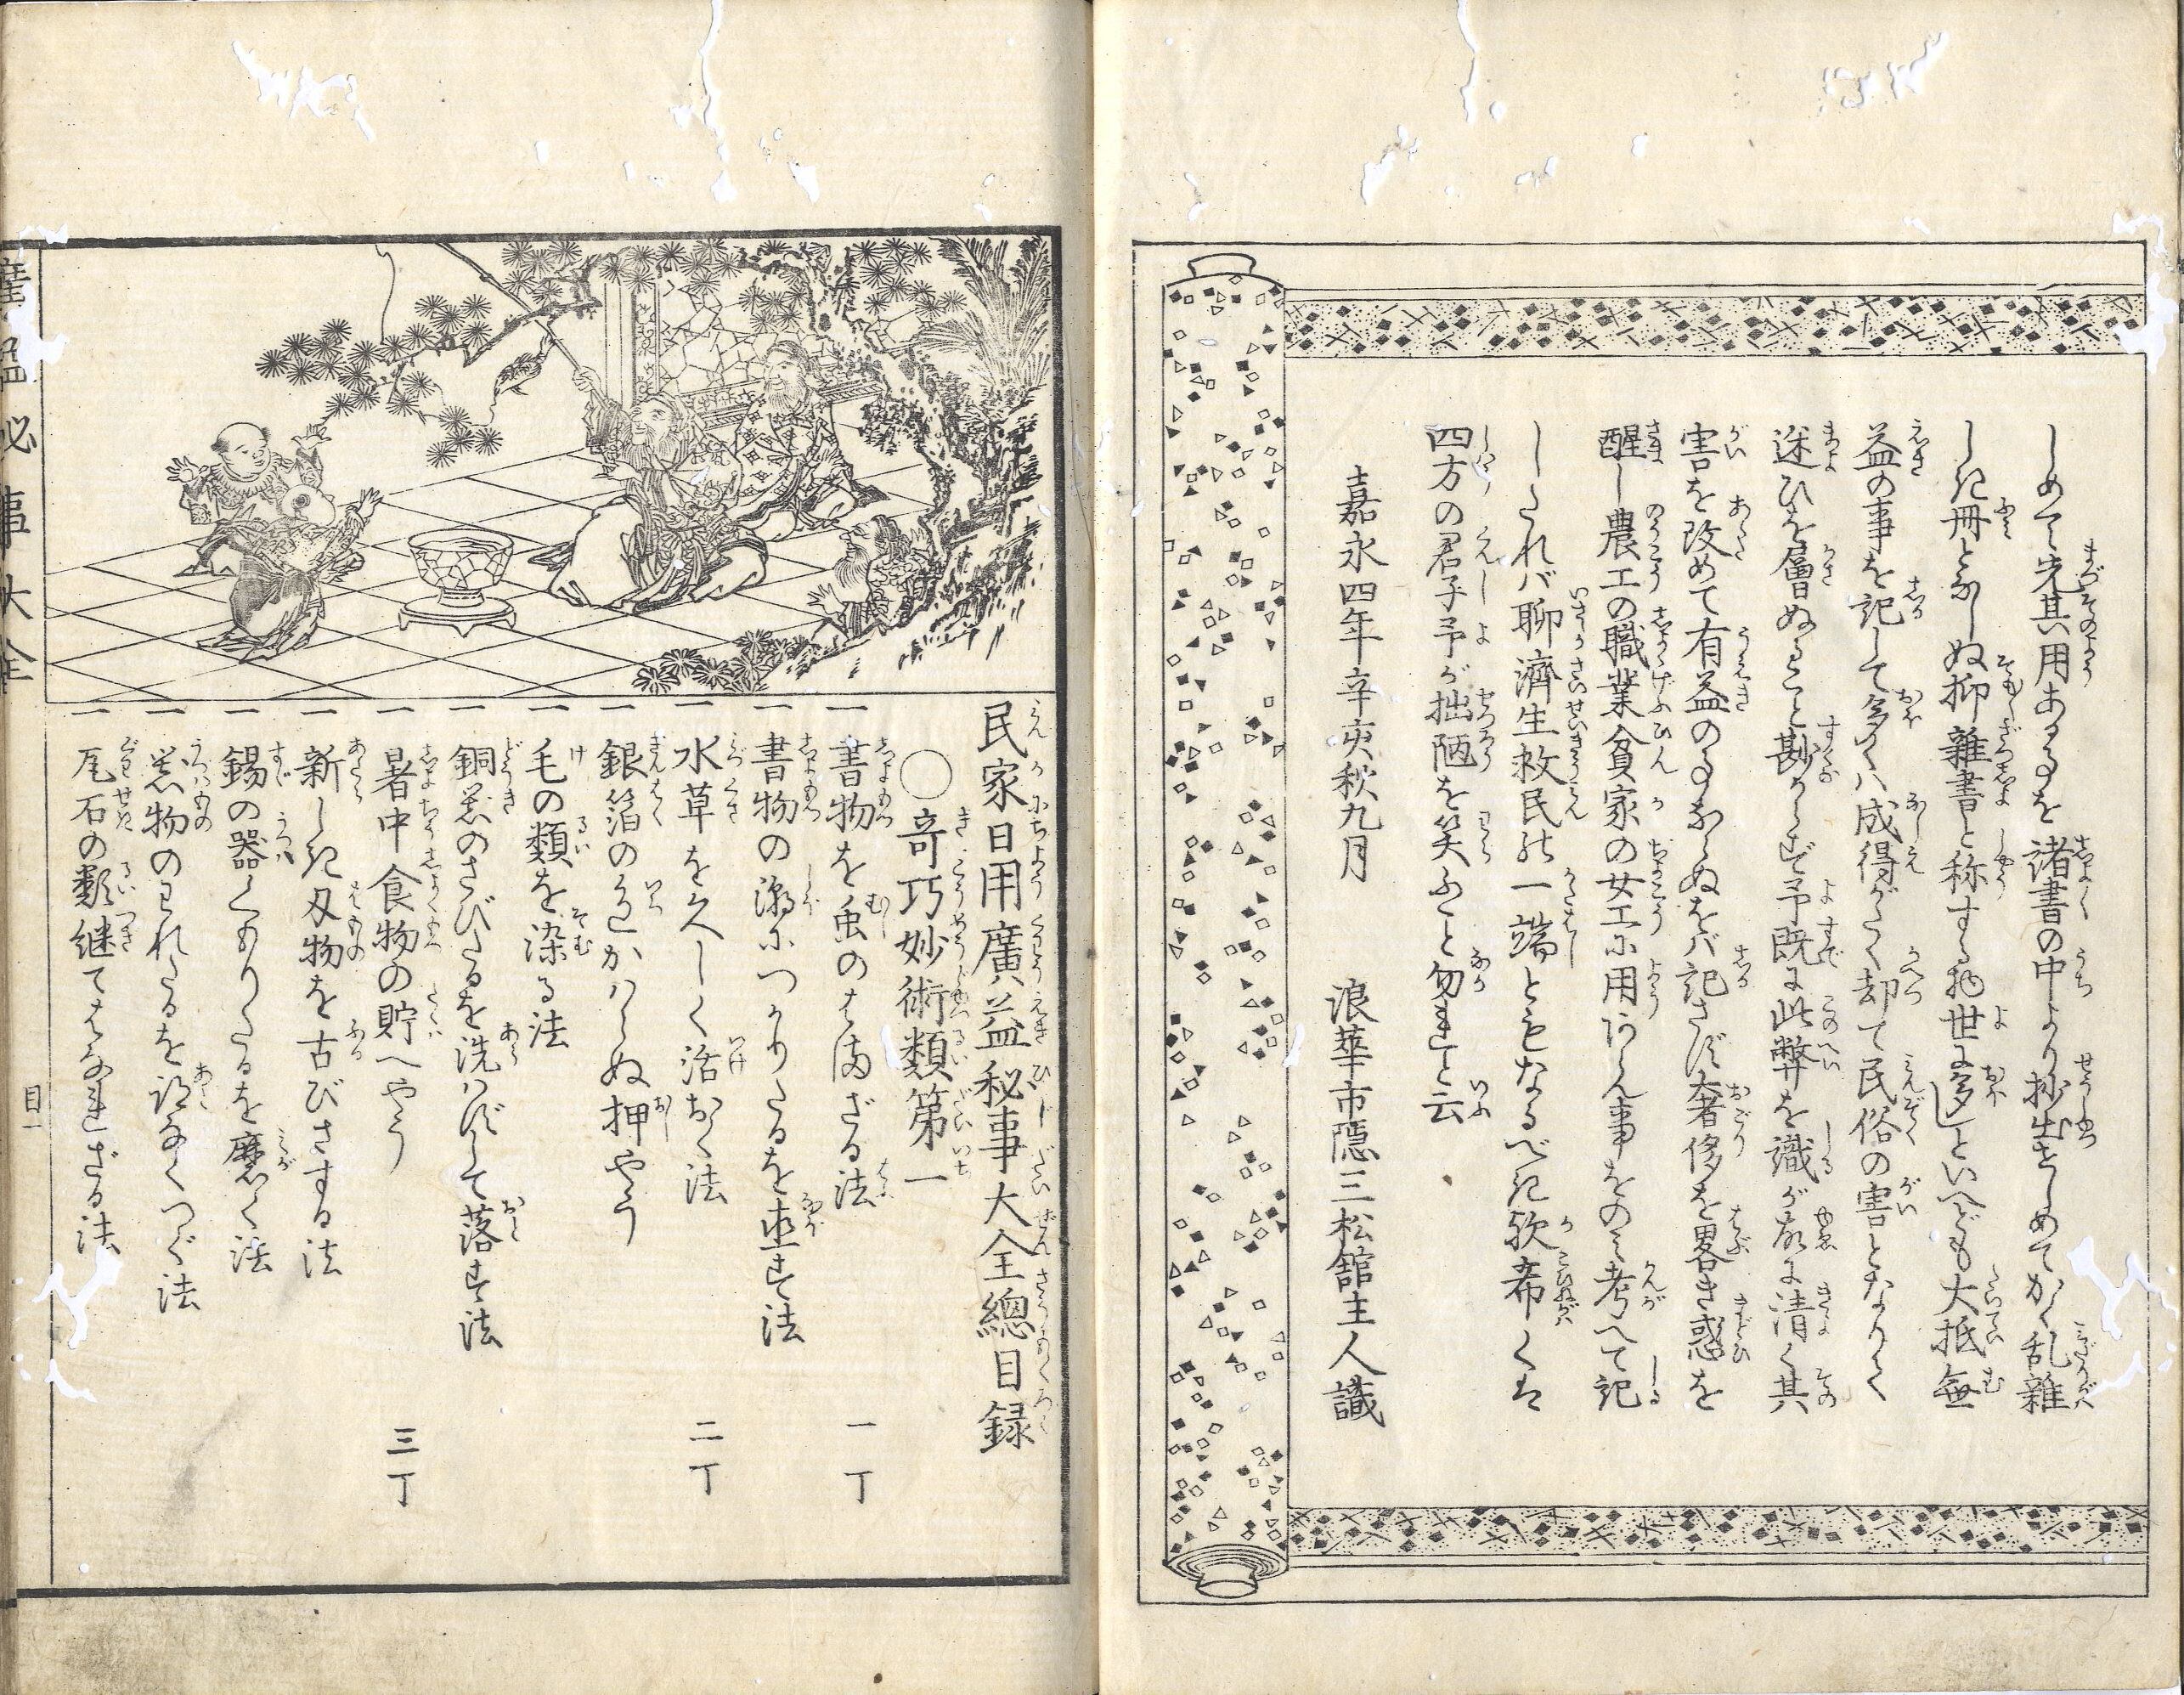 しめて先其用あるを諸書の中より抄出せしめてかく乱雑
しき冊となしぬ抑雑書と称する物世に多しといへども大抵無
益の事を記して多くハ成得がたく却て民俗の害となりて
迷ひを層ぬること尠からず予既に此弊を識が故に清く其
害を改めて有益のるならぬをバ記さず奢侈を畧き惑を
醒し農工の職業貧家の女工に用ゐん事をのミ考へて記
したれバ聊濟生救民の一端ともなるべき歟希くは
四方の君子予が拙陋を笑ふこと勿れと云
嘉永四年辛亥秋九月
浪華市隠三松舘主人識
民家日用廣益秘事大全總目録
〇竒巧妙術類第一
一 書物を虫のはまざる法 一丁
一 書物の潮につかりたるを直す法
一 水草を久しく活おく法 二丁
一 銀箔の色かハらぬ押やう
一 毛の類を染る法
一 銅器のさびたるを洗ハずして落す法
一 暑中食物の貯へやう 三丁
一 新しき刄物を古びさする法
一 錫の器くもりたるを磨く法
一 器物のわれたるを跡なくつぐ法
一 瓦石の類継てはなれざる法
廣益秘事大全
目一